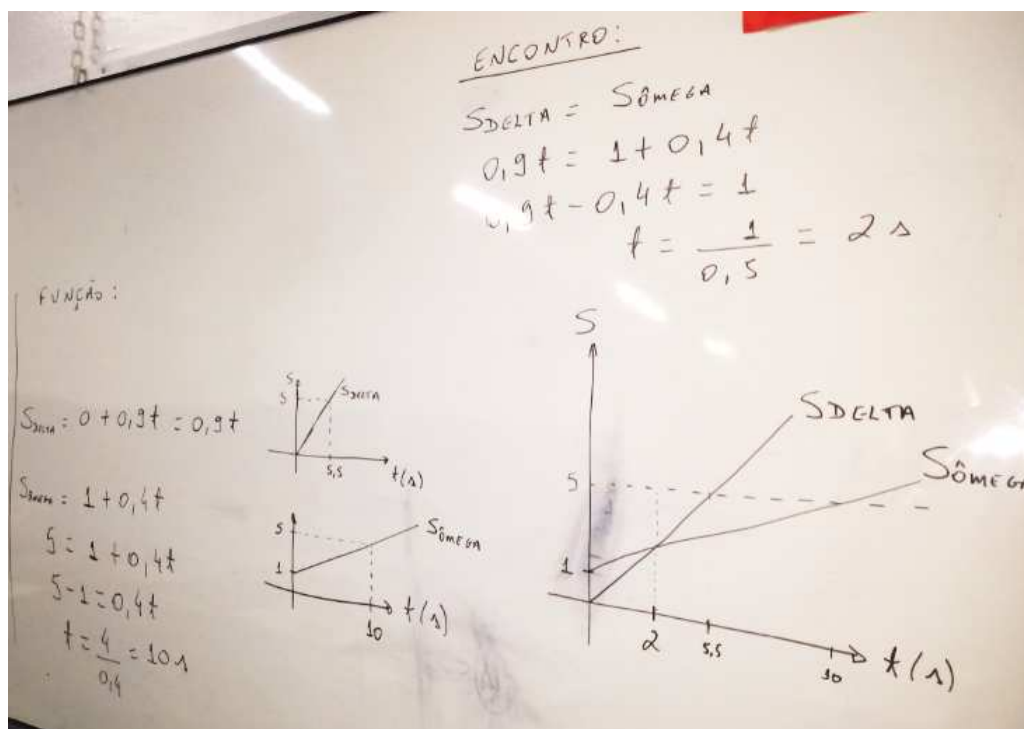 ENCONTRO:
SDELTA = SÔMEGA
0,9t = 1 + 0,4t
0,9t - 0,4t = 1
t = 1/0,5 = 2 s
FUNÇÃO:
SDELTA = 0 + 0,9t = 0,9t
SÔMEGA = 1 + 0,4t
5 = 1 + 0,4t
5-1 = 0,4t
t = 4/0,4 = 10 s
S
5
SDELTA
5,5
t(s)
5
SÔMEGA
1
10
t(s)
S
SDELTA
SÔMEGA
5
1
2
5,5
10
t(s)